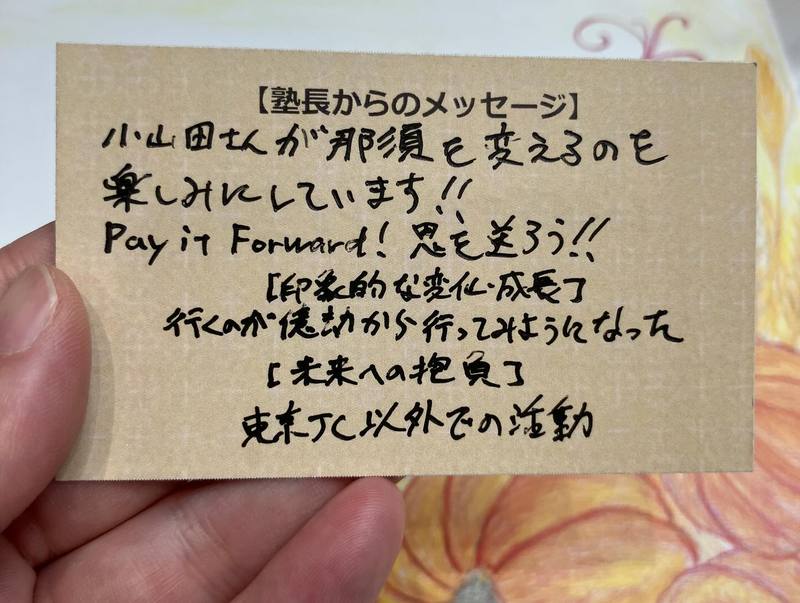 【塾長からのメッセージ】
小山田さんが那須を変えるのを
楽しみにしています!!
Pay it Forward! 恩を送ろう!!
[印象的な変化・成長]
行くのが億劫から行ってみようになった
[未来への抱負]
東京JC以外での活動